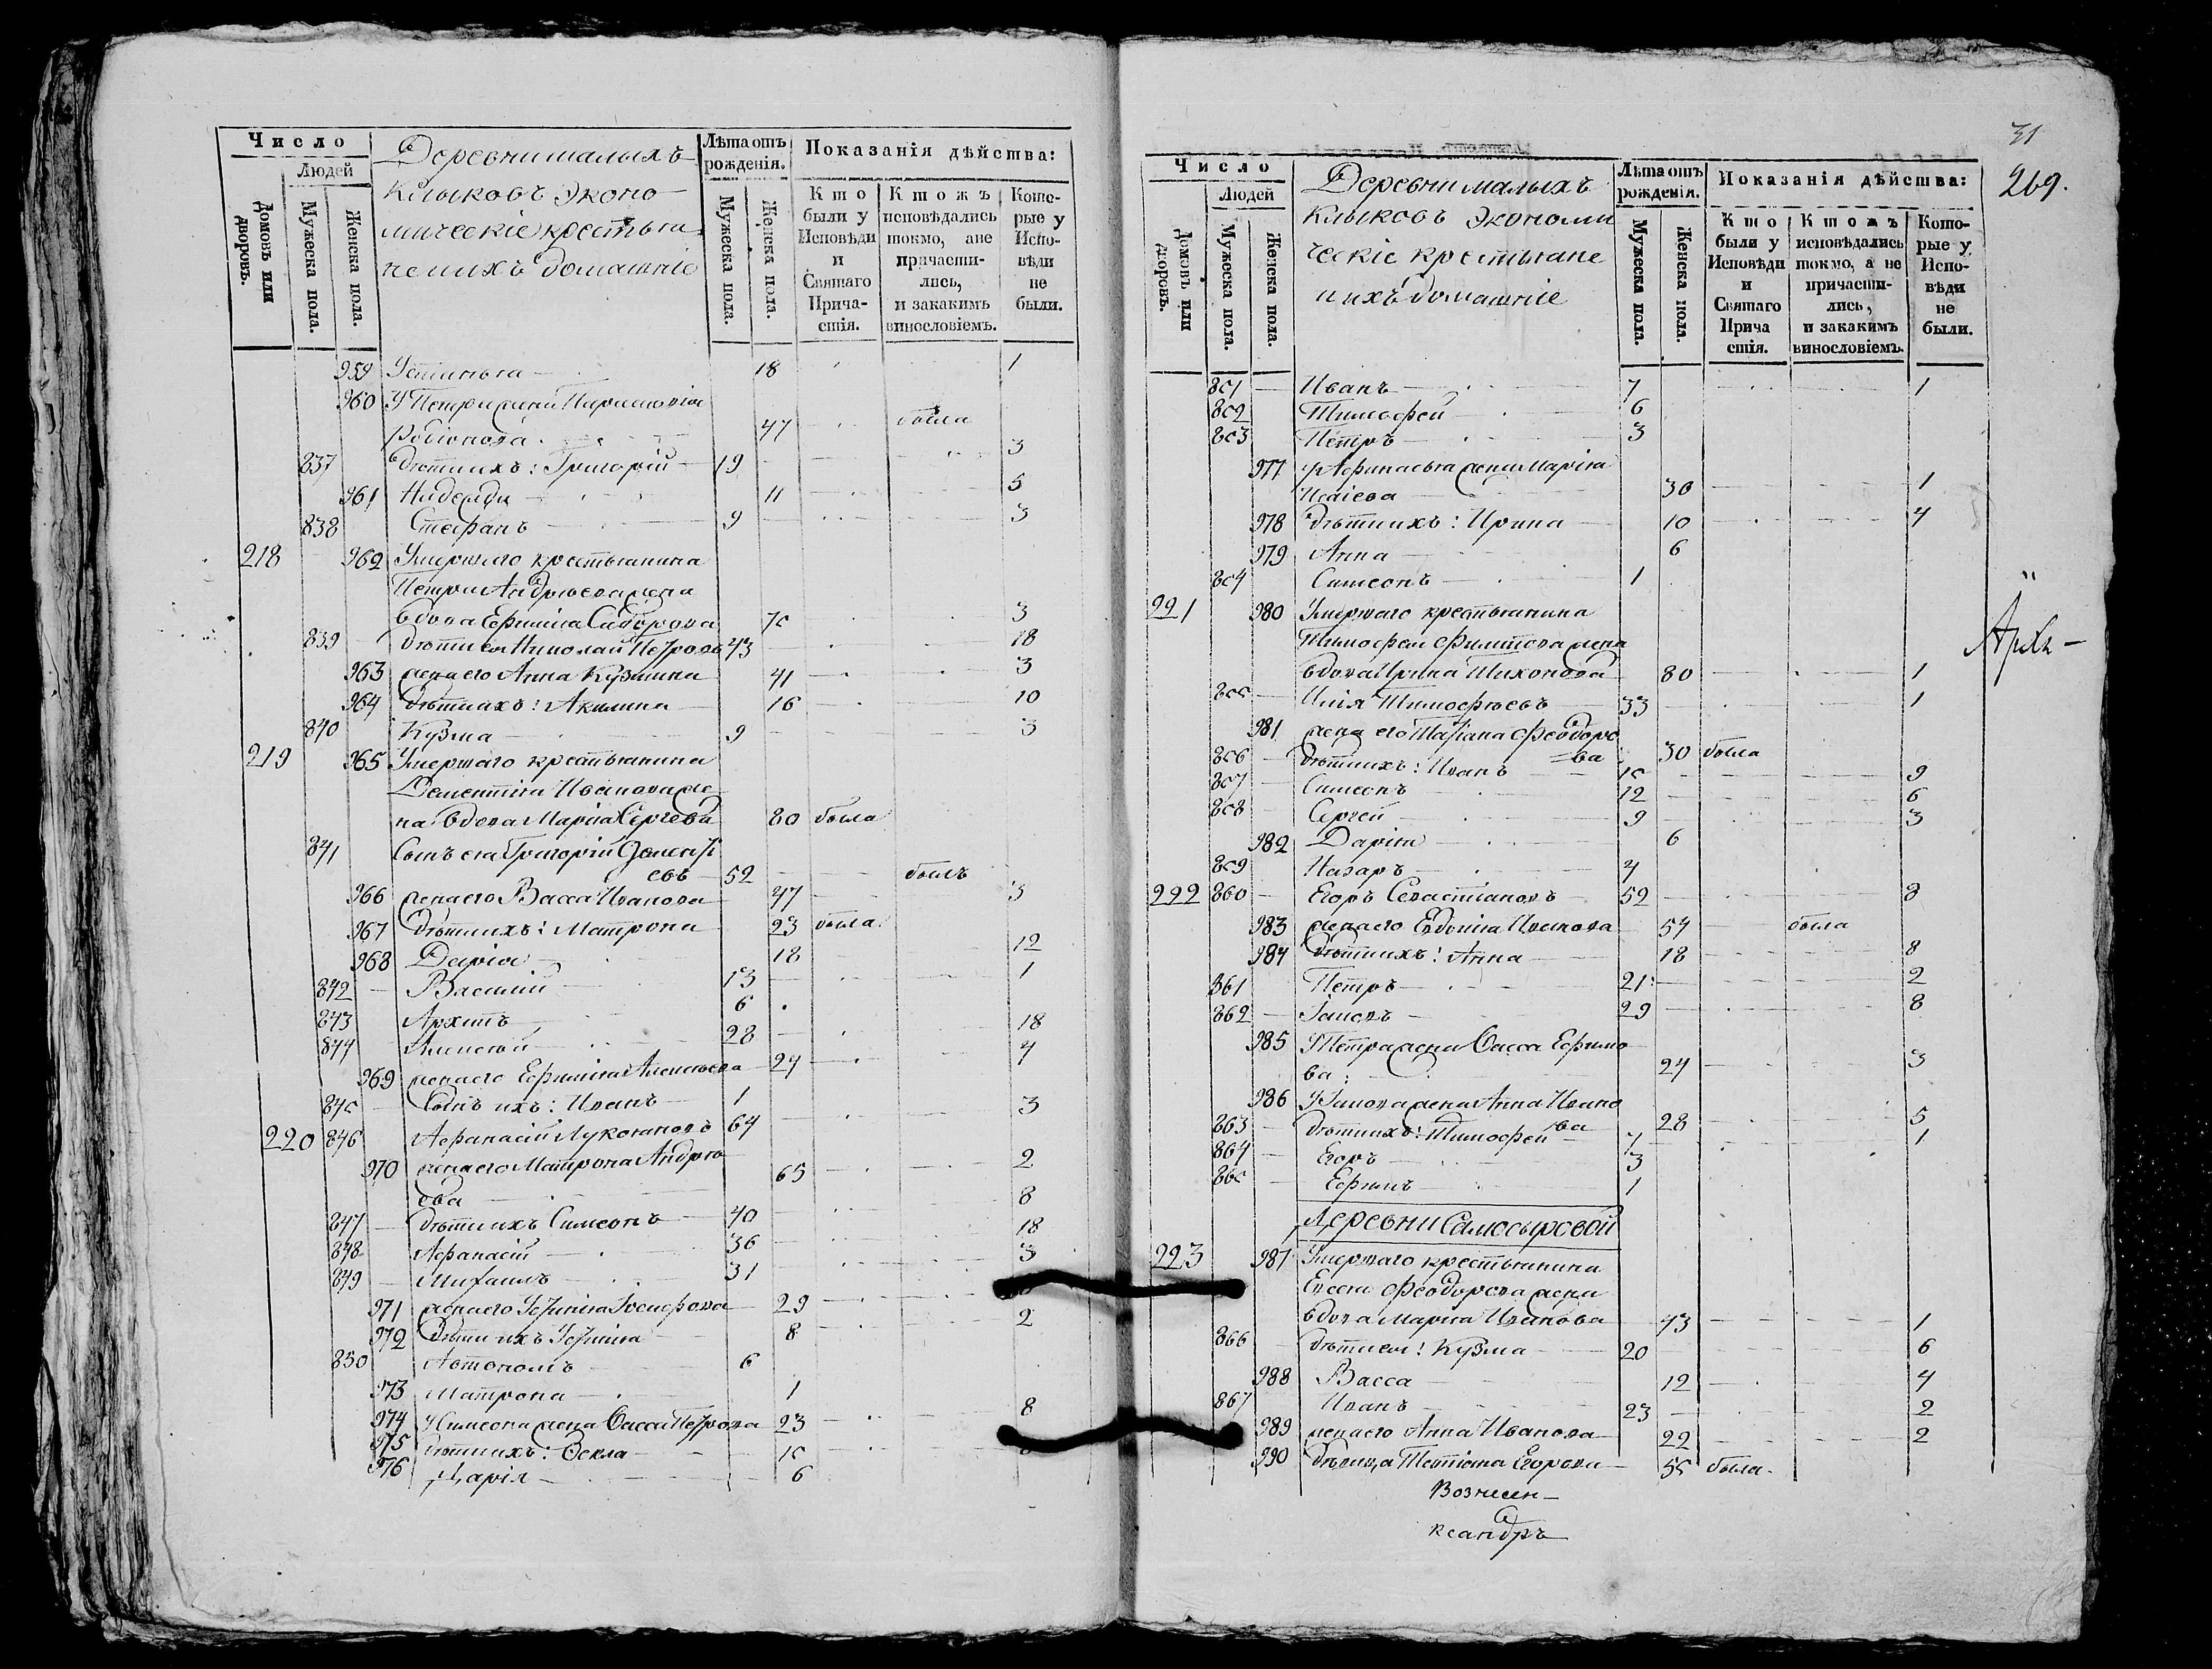 Число
Людей
Домовъ или дворовъ.
Мужеска пола.
Женска пола.
Деревни малыхъ
Клыковъ эконо
мическіе крестьяне
и ихъ домашніе
Лѣта отъ рожденія.
Мужеска пола.
Женска пола.
Показанія дѣйства:
Кто были у Исповѣди и Святаго Прича-стія.
Ктожъ исповѣдались токмо, а не причасти-лись, и закакимъ винословіемъ.
Кото-рые у Испо-вѣди не были.
959 Устинья 18 1
960 У Петра жена Парасковія
Родіонова 47 была
837 дѣти ихъ: Григорій 19 3
961 Надежда 11 5
838 Стефанъ 9 3
218 962 Умершаго крестьянина
Петра Андреева жена
вдова Ефимія Сидорова 70 3
839 дѣти ея Николай Петровъ 43 18
963 жена его Анна Кузмина 41 3
964 дѣти ихъ: Акилина 16 10
840 Кузма 9 3
219 965 Умершаго крестьянина
Дементія Иванова же
на вдова Марія Сергева 80 была
841 Сынъ ея Григорій Демент
евъ 52 былъ
966 жена его Васса Иванова 47 3
967 дѣти ихъ: Матрона 23 была
968 Дарія 18 12
842 Василій 13 1
843 Архипъ 6
844 Алексѣй 28 18
969 жена его Ефимія Алексѣева 24 4
845 Сынъ ихъ: Иванъ 1
220 846 Афанасій Лукояновъ 64 3
970 жена его Матрона Андре
ева 65 2
847 дѣти ихъ Симеонъ 40 8
848 Афанасій 36 18
849 Михаилъ 31 3
971 жена его Іосифова 29
972 дѣти ихъ 8 2
850 Автономъ 6
973 Матрона 1
974 У Симеона жена Васса Петрова 23 8
975 дѣти ихъ: Фекла 10
976 Дарія 6
31
269.
Число
Людей
Домовъ или дворовъ.
Мужеска пола.
Женска пола.
Деревни малыхъ
Клыковъ экономи
ческіе крестьяне
и ихъ домашніе
Лѣта отъ рожденія.
Мужеска пола.
Женска пола.
Показанія дѣйства:
Кто были у Исповѣди и Святаго Прича стія.
Ктожъ исповѣдались токмо, а не причасти-лись, и закакимъ винословіемъ.
Кото-рые у Испо-вѣди не были.
851 Иванъ 7 1
852 Тимофей 6
853 Петръ 3
977 У Афанасья жена Марія
Исаіева 30 1
978 дѣти ихъ: Ирина 10 4
979 Анна 6
854 Симеонъ 1
221 980 Умершаго крестьянина
Тимофея жена
вдова Ирина Тихонова 80 1
855 Илія Тимофѣевъ 33 1
981 жена его Татіана Феодоро
ва 30 была
856 дѣти ихъ: Иванъ 15 9
857 Симеонъ 12 6
858 Сергей 9 3
982 Дарія 6
859 Назаръ 4
222 860 Егоръ Севастіановъ 52 8
983 жена его Евдокія Иванова 54 была
984 дѣти ихъ: Анна 18 8
861 Петръ 21 2
862 Іаковъ 29 8
985 У Петра жена Васса Ефимо
ва 24 3
986 У Іакова жена Анна Ивано
ва 28 5
863 дѣти ихъ: Тимофей 7 1
864 Егоръ 3
865 Ефимъ 1
Деревни Самосыровой
223 987 Умершаго крестьянина
Евсея Феодорова жена
вдова Марія Иванова 43 1
866 дѣти ея: Кузма 20 6
988 Васса 12 4
867 Иванъ 23 2
989 жена его Анна Иванова 22 2
990 дѣвица Татіана Егорова 55 была
Вознесен
ксандръ
Архи